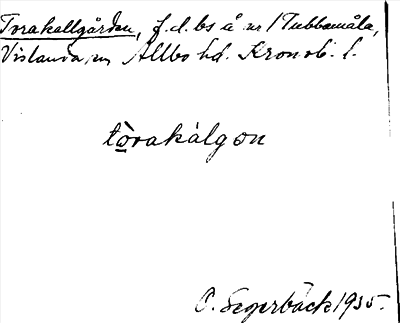 Torakallgården, f.d. bs å nr 1 Tubbamåla,
Vislanda sn Allbo hd. Kronob. l.
tòrakàlgon
O. Segerbäck 1935.